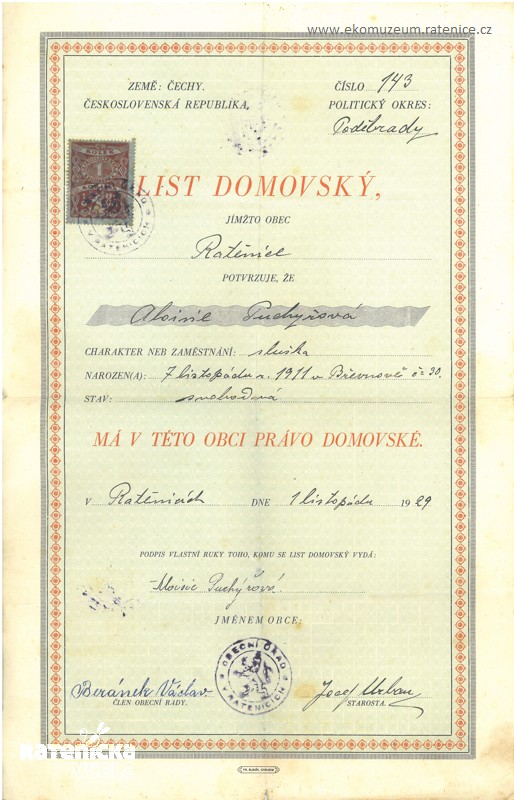 www.ekomuzeum.ratenice.cz
ZEMĚ: ČECHY. ČÍSLO 143
ČESKOSLOVENSKÁ REPUBLIKA, POLITICKÝ OKRES:
Poděbrady
KOLEK
1
LIST DOMOVSKÝ,
OBECNÍ ÚŘAD V RATENICÍCH
JÍMŽTO OBEC
Ratěnice
POTVRZUJE, ŽE
Aloisie Puchýřová
CHARAKTER NEB ZAMĚSTNÁNÍ: služka
NAROZEN(A): 7 listopádu r. 1911 v Břevnově č= 30.
STAV: svobodná
MÁ V TÉTO OBCI PRÁVO DOMOVSKÉ.
V Ratěnicích DNE 1 listopádu 1929
PODPIS VLASTNÍ RUKY TOHO, KOMU SE LIST DOMOVSKÝ VYDÁ:
Aloisie Puchýřová.
JMÉNEM OBCE:
OBECNÍ ÚŘAD V RATENICÍCH
Beránek Václav Josef Urban
ČLEN OBECNÍ RADY. STAROSTA.
RATENICKÁ